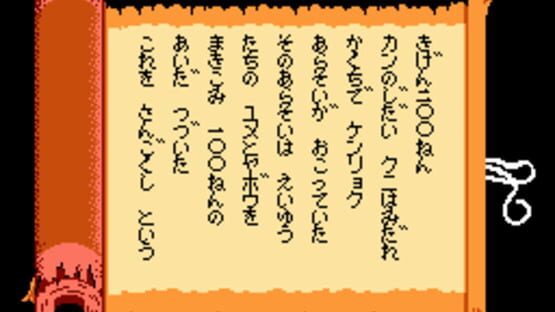 きげん一〇〇ねん
カンのじだい クニはみだれ
かくちで ケンリョク
あらそいが おこっていた
そのあらそいは えいゆう
たちの ユメとヤボウを
まきこみ 一〇〇ねんの
あいだ つづいた
これを さんごくし という